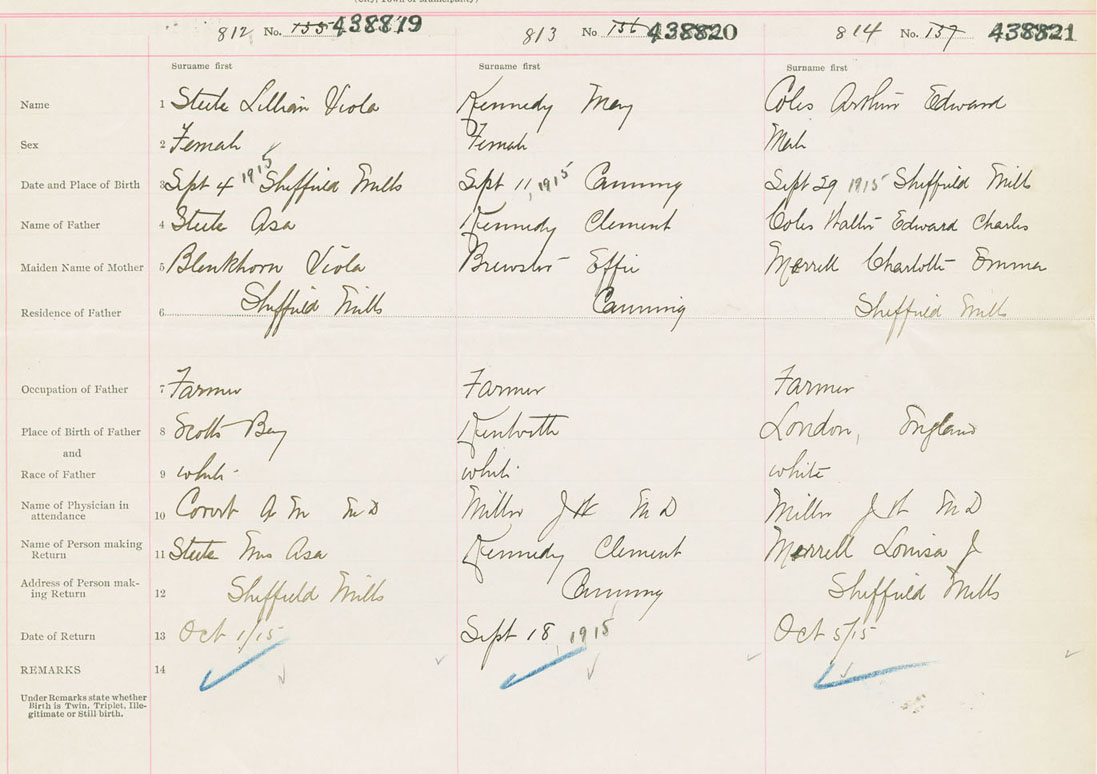 (City, Town or Municipality)
812 No. 155 438819 813 No 156 438820 814 No. 157 438821
Surname first Surname first Surname first
Name 1 Steele Lillian Viola Kennedy May Coles Arthur Edward
Sex 2 Female Female Male
Date and Place of Birth 3 Sept 4 1915 Sheffield Mills Sept 11, 1915 Canning Sept 29 1915 Sheffield Mills
Name of Father 4 Steele Asa Kennedy Clement Coles Walter Edward Charles
Maiden Name of Mother 5 Blenkhorn Viola Brewster Effie Merrell Charlotte Emma
Residence of Father 6 Sheffield Mills Canning Sheffield Mills
Occupation of Father 7 Farmer Farmer Farmer
Place of Birth of Father 8 Scotts Bay Kentworth London, England
and
Race of Father 9 white white white
Name of Physician in
attendance 10 Covert A M M D Miller J H M D Miller J H M D
Name of Person making
Return 11 Steele Mrs Asa Kennedy Clement Merrell Louisa J
Address of Person mak-
ing Return 12 Sheffield Mills Canning Sheffield Mills
Date of Return 13 Oct 1/15 Sept 18, 1915 Oct 5/15
REMARKS 14
Under Remarks state whether
Birth is Twin, Triplet, Ille-
gitimate or Still birth.